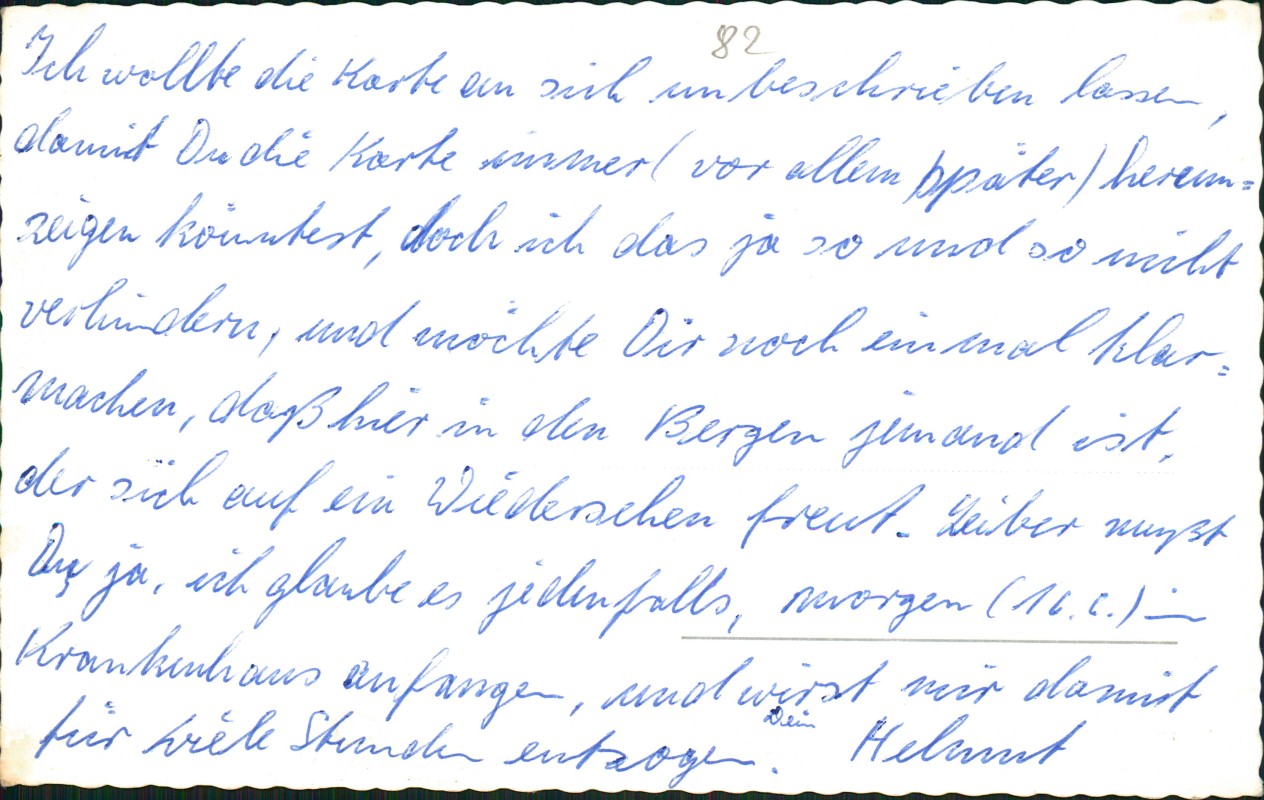 82
Ich wollte die Karte an sich unbeschrieben lassen,
damit Du die Karte immer (vor allem später) herum=
zeigen könntest, doch ich das ja so und so nicht
verhindern, und möchte Dir noch einmal klar=
machen, daß hier in den Bergen jemand ist,
der sich auf ein Wiedersehen freut. Leiber mußt
Du ja, ich glaube es jedenfalls, morgen (16.6.) im
Krankenhaus anfangen, und wirst mir damit
für viele Stunden entzogen. Dein Helmut